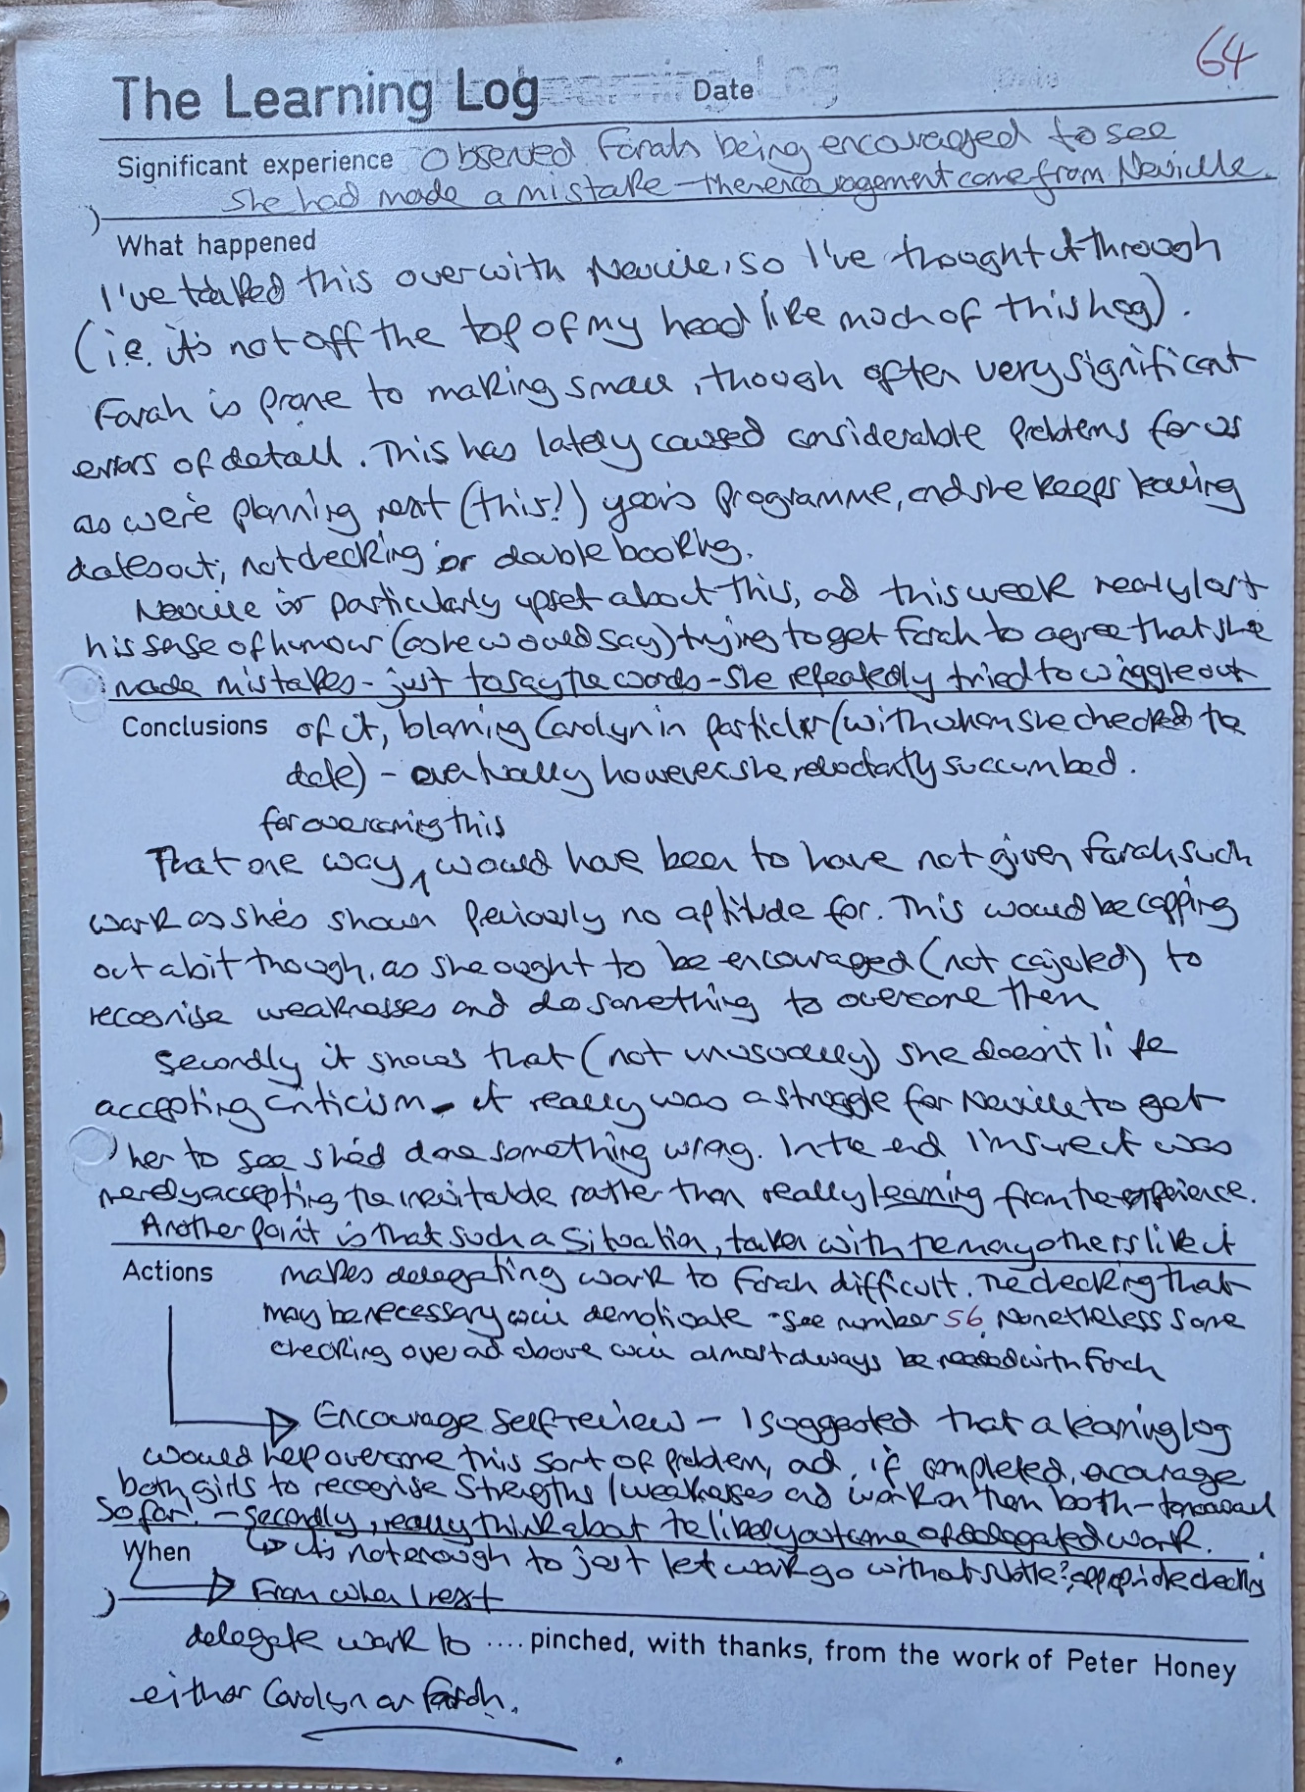 64
The Learning Log Date
Significant experience Observed Farah being encouraged to see
she had made a mistake - the encouragement came from Neville.
What happened
I've talked this over with Neville, so I've thought it through
(i.e. it's not off the top of my head like much of this log).
Farah is prone to making small, though often very significant
errors of detail. This has lately caused considerable problems for us
as we're planning next (this!) year's programme, and she keeps leaving
dates out, not checking or double booking.
Neville is particularly upset about this, and this week nearly lost
his sense of humour (as he would say) trying to get Farah to agree that she
made mistakes - just to say the words - she repeatedly tried to wiggle out
Conclusions of it, blaming Carolyn in particular (with whom she checked the
date) - eventually however she reluctantly succumbed.
for overcoming this
That one way, would have been to have not given Farah such
work as she's shown previously no aptitude for. This would be copping
out a bit though, as she ought to be encouraged (not cajoled) to
recognise weaknesses and do something to overcome them
Secondly it shows that (not unusually) she doesn't like
accepting criticism - it really was a struggle for Neville to get
her to see she'd done something wrong. In the end I'm sure it was
merely accepting the inevitable rather than really learning from the experience.
Another point is that such a situation, taken with the many others like it
Actions makes delegating work to Farah difficult. The checking that
may be necessary will demotivate - see number 56. Nonetheless some
checking over and above will almost always be needed with Farah
Encourage self review - I suggested that a learning log
would help overcome this sort of problem, and, if completed, encourage
both girls to recognise strengths/weaknesses and work on them both -
so far! - secondly, really think about the likely outcome of delegated work.
When it's not enough to just let work go without subtle?, appropriate checking
From when I next
delegate work to .... pinched, with thanks, from the work of Peter Honey
either Carolyn or Farah.